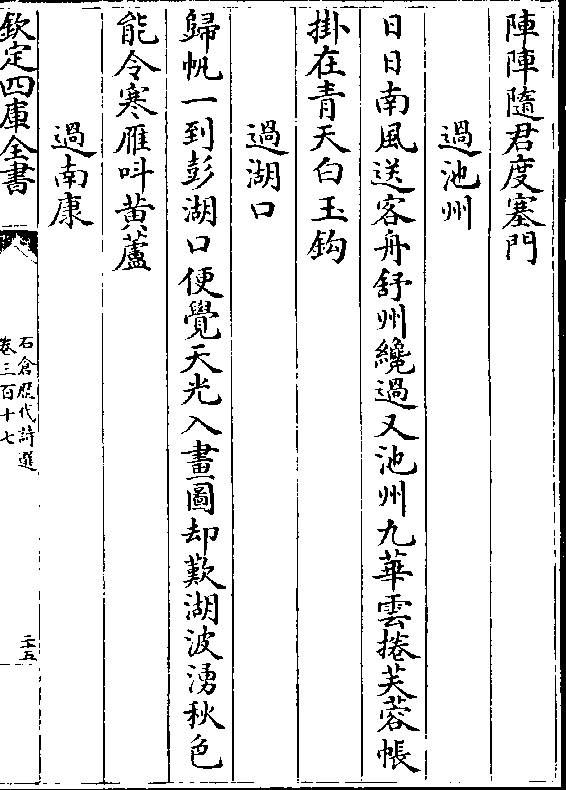 陣陣隨君度塞門
過池州
日日南風送客舟舒州纔過又池州九華雲捲芙蓉帳
掛在青天白玉鈎
過湖口
歸帆一到彭湖口便覺天光入畫圖却歎湖波湧秋色
能令寒雁叫黄蘆
過南康
欽定四庫全書
石倉歷代詩選
卷三百十七
二十五